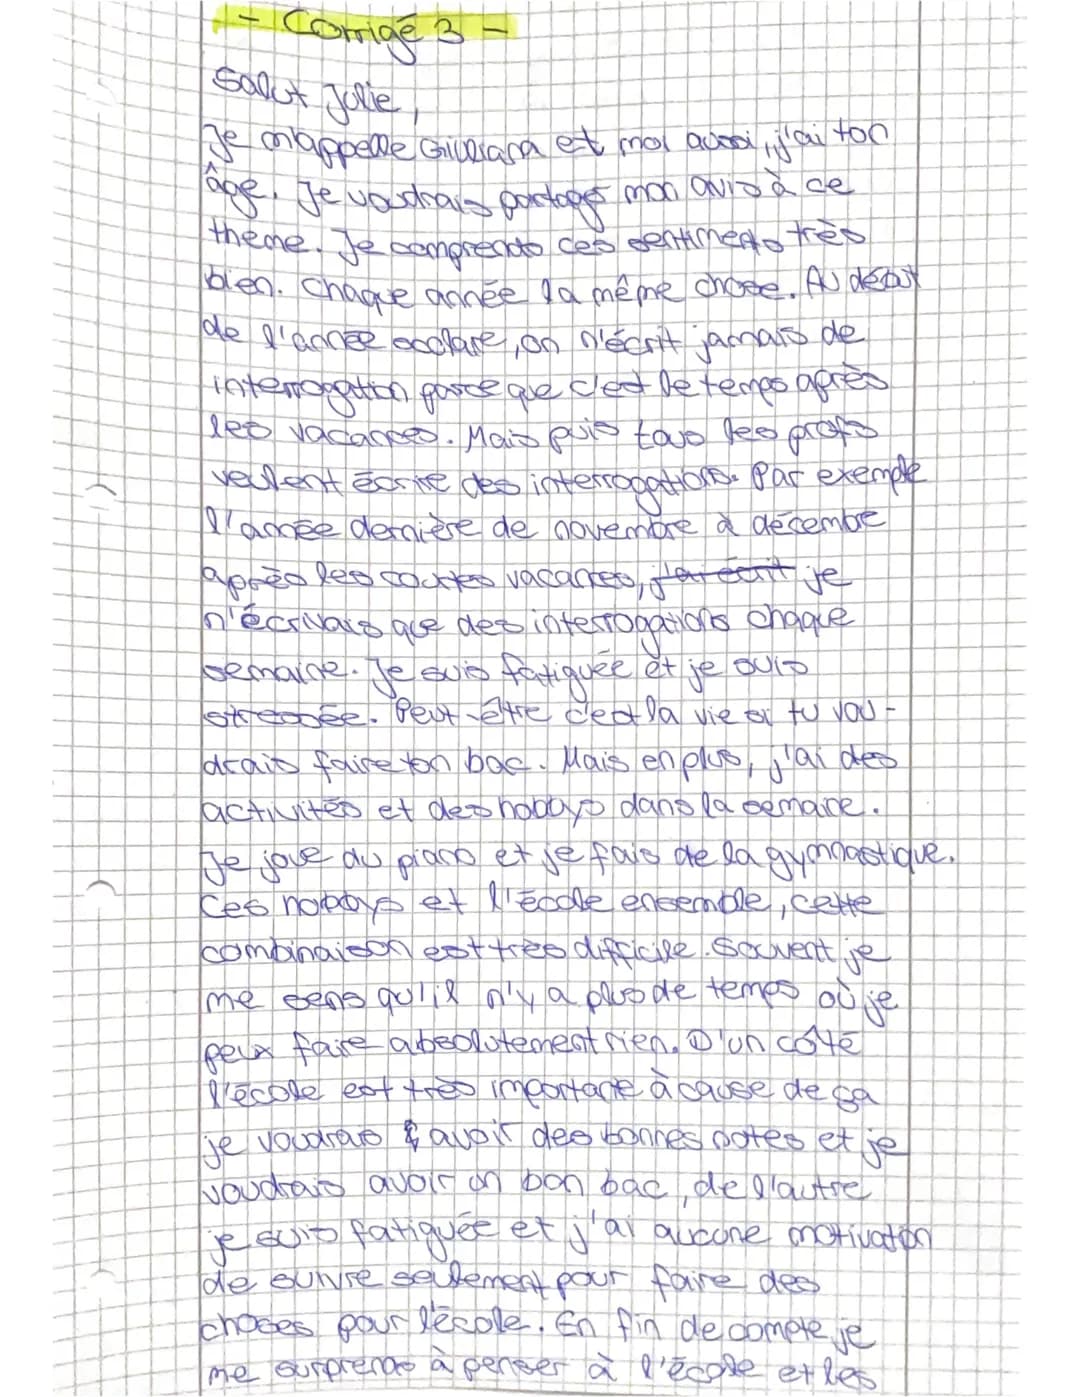 - Corrigé 3 -
Salut Julie,
Je m'appelle Giuliana et moi aussi, j'ai ton
âge. Je voudrais partager mon avis à ce
thème. Je comprends ces sentiments très
bien. Chaque année la même chose. Au début
de l'année scolare, on n'écrit jamais de
interrogation parce que c'est le temps après
les vacances. Mais puis tous les profs
veulent écrire des interrogations. Par exemple
l'année dernière de novembre à décembre
après les courtes vacances, j'ai écrit je
n'écrivais que des interrogations chaque
semaine. Je suis fatiguée et je suis
stressée. Peut-être c'est la vie si tu vou-
drais faire ton bac. Mais en plus, j'ai des
activités et des hobbys dans la semaine.
Je joue du piano et je fais de la gymnastique.
Ces hobbys et l'école ensemble, cette
combinaison est très difficile. Souvent je
me sens qu'il n'y a plus de temps où je
peux faire absolutement rien. D'un côté
l'école est très importante à cause de ça
je voudrais avoir des bonnes notes et je
voudrais avoir un bon bac, de l'autre
je suis fatiguée et j'ai aucune motivation
de suivre seulement pour faire des
choses pour l'école. En fin de compte je
me surprends à penser à l'école et les